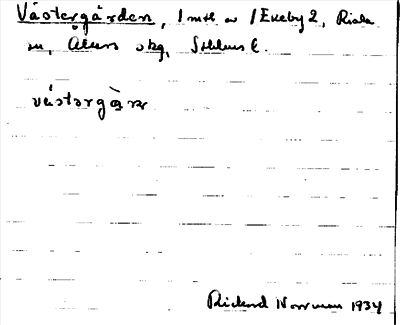 Västergården, 1 mtl av 1 Ekeby 2, Riala
sn, Åkers skg, Sthlms l.
västərgà̱ɳ
Rickard Norrman 1934